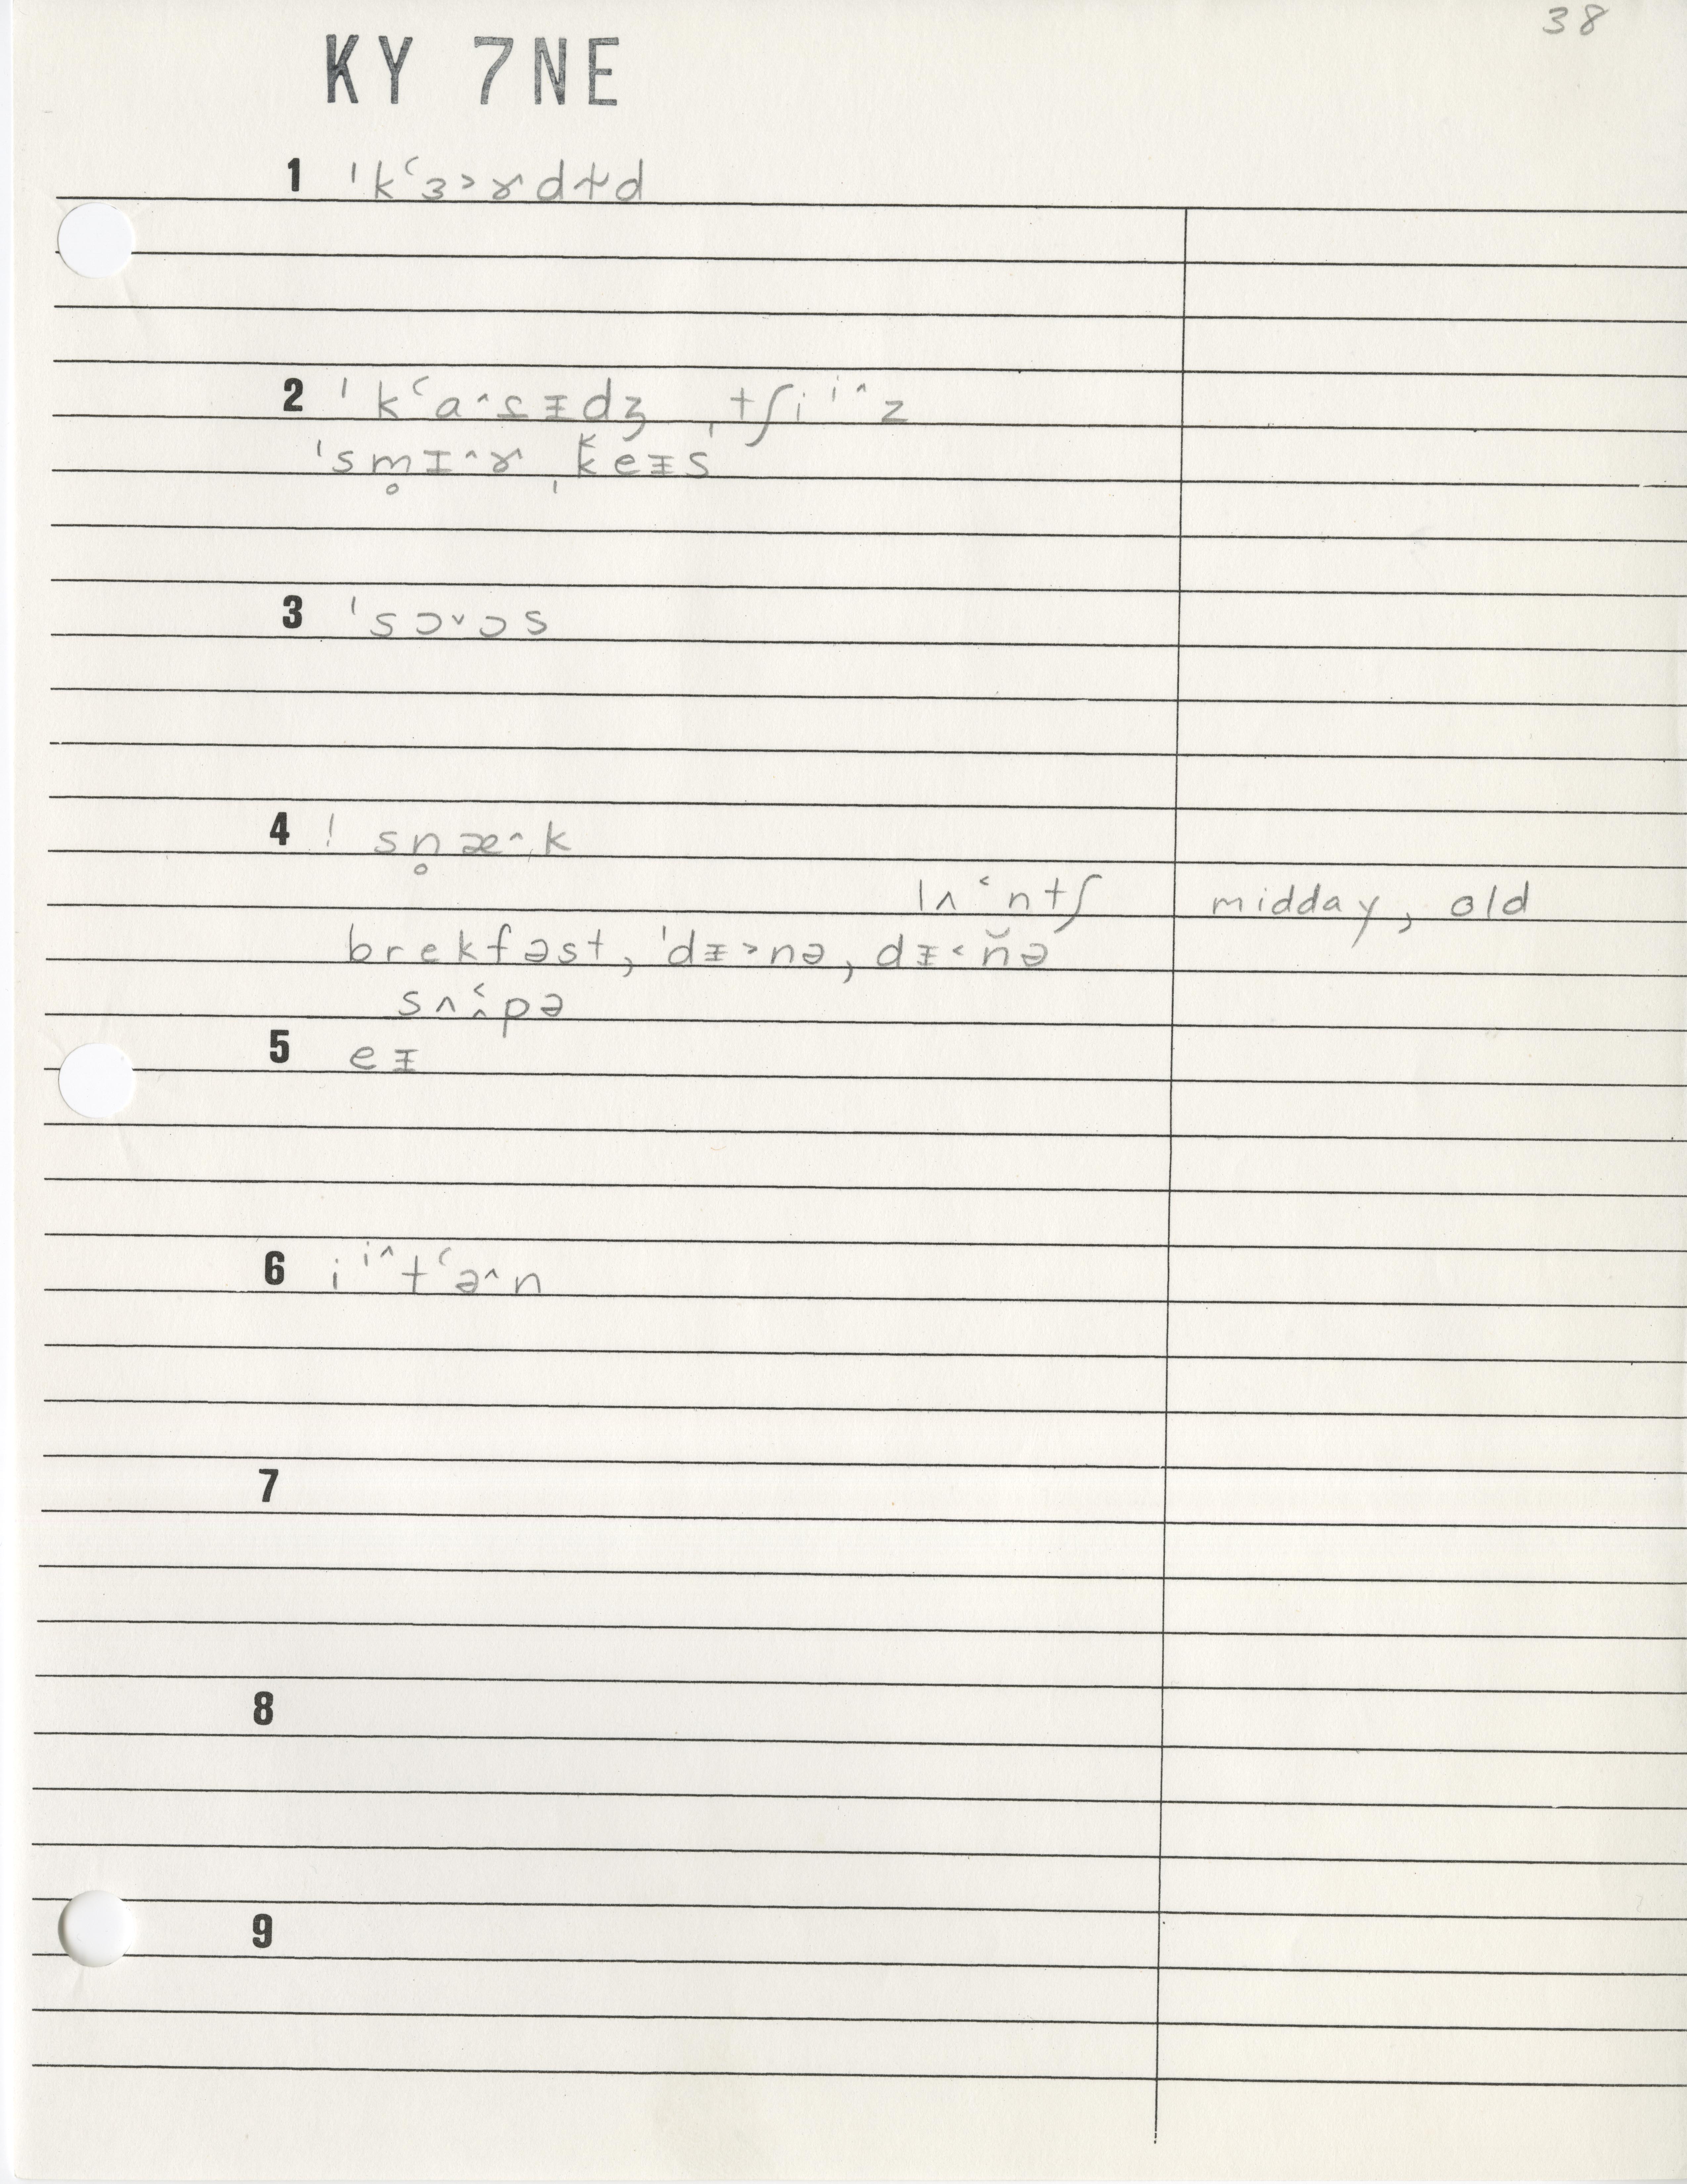 38
KY 7NE
1 ˈkʻɜ˃ɤdɨd
2 ˈkʻɑ˄ɾᵻdʒ ˌtʃiⁱ˄z
ˈsm̥ɪ˄ɤ ˌkeᵻs
3 ˈsɔ˅ɔs
4 ! sn̥æ˄k
lʌ˂ntʃ midday, old
brekfəst, ˈdᵻ˃nə, dᵻ˂n̆ə
sʌ˄˂pə
5 eᵻ
6 iⁱ˄tʻə˄n
7
8
9